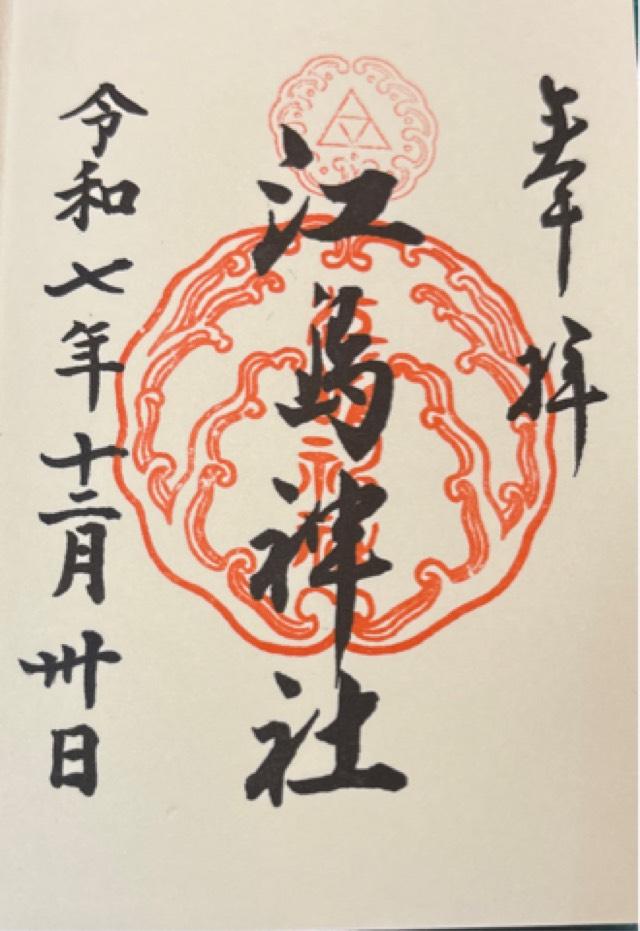 奉拝
江島神社
令和七年十二月卅日